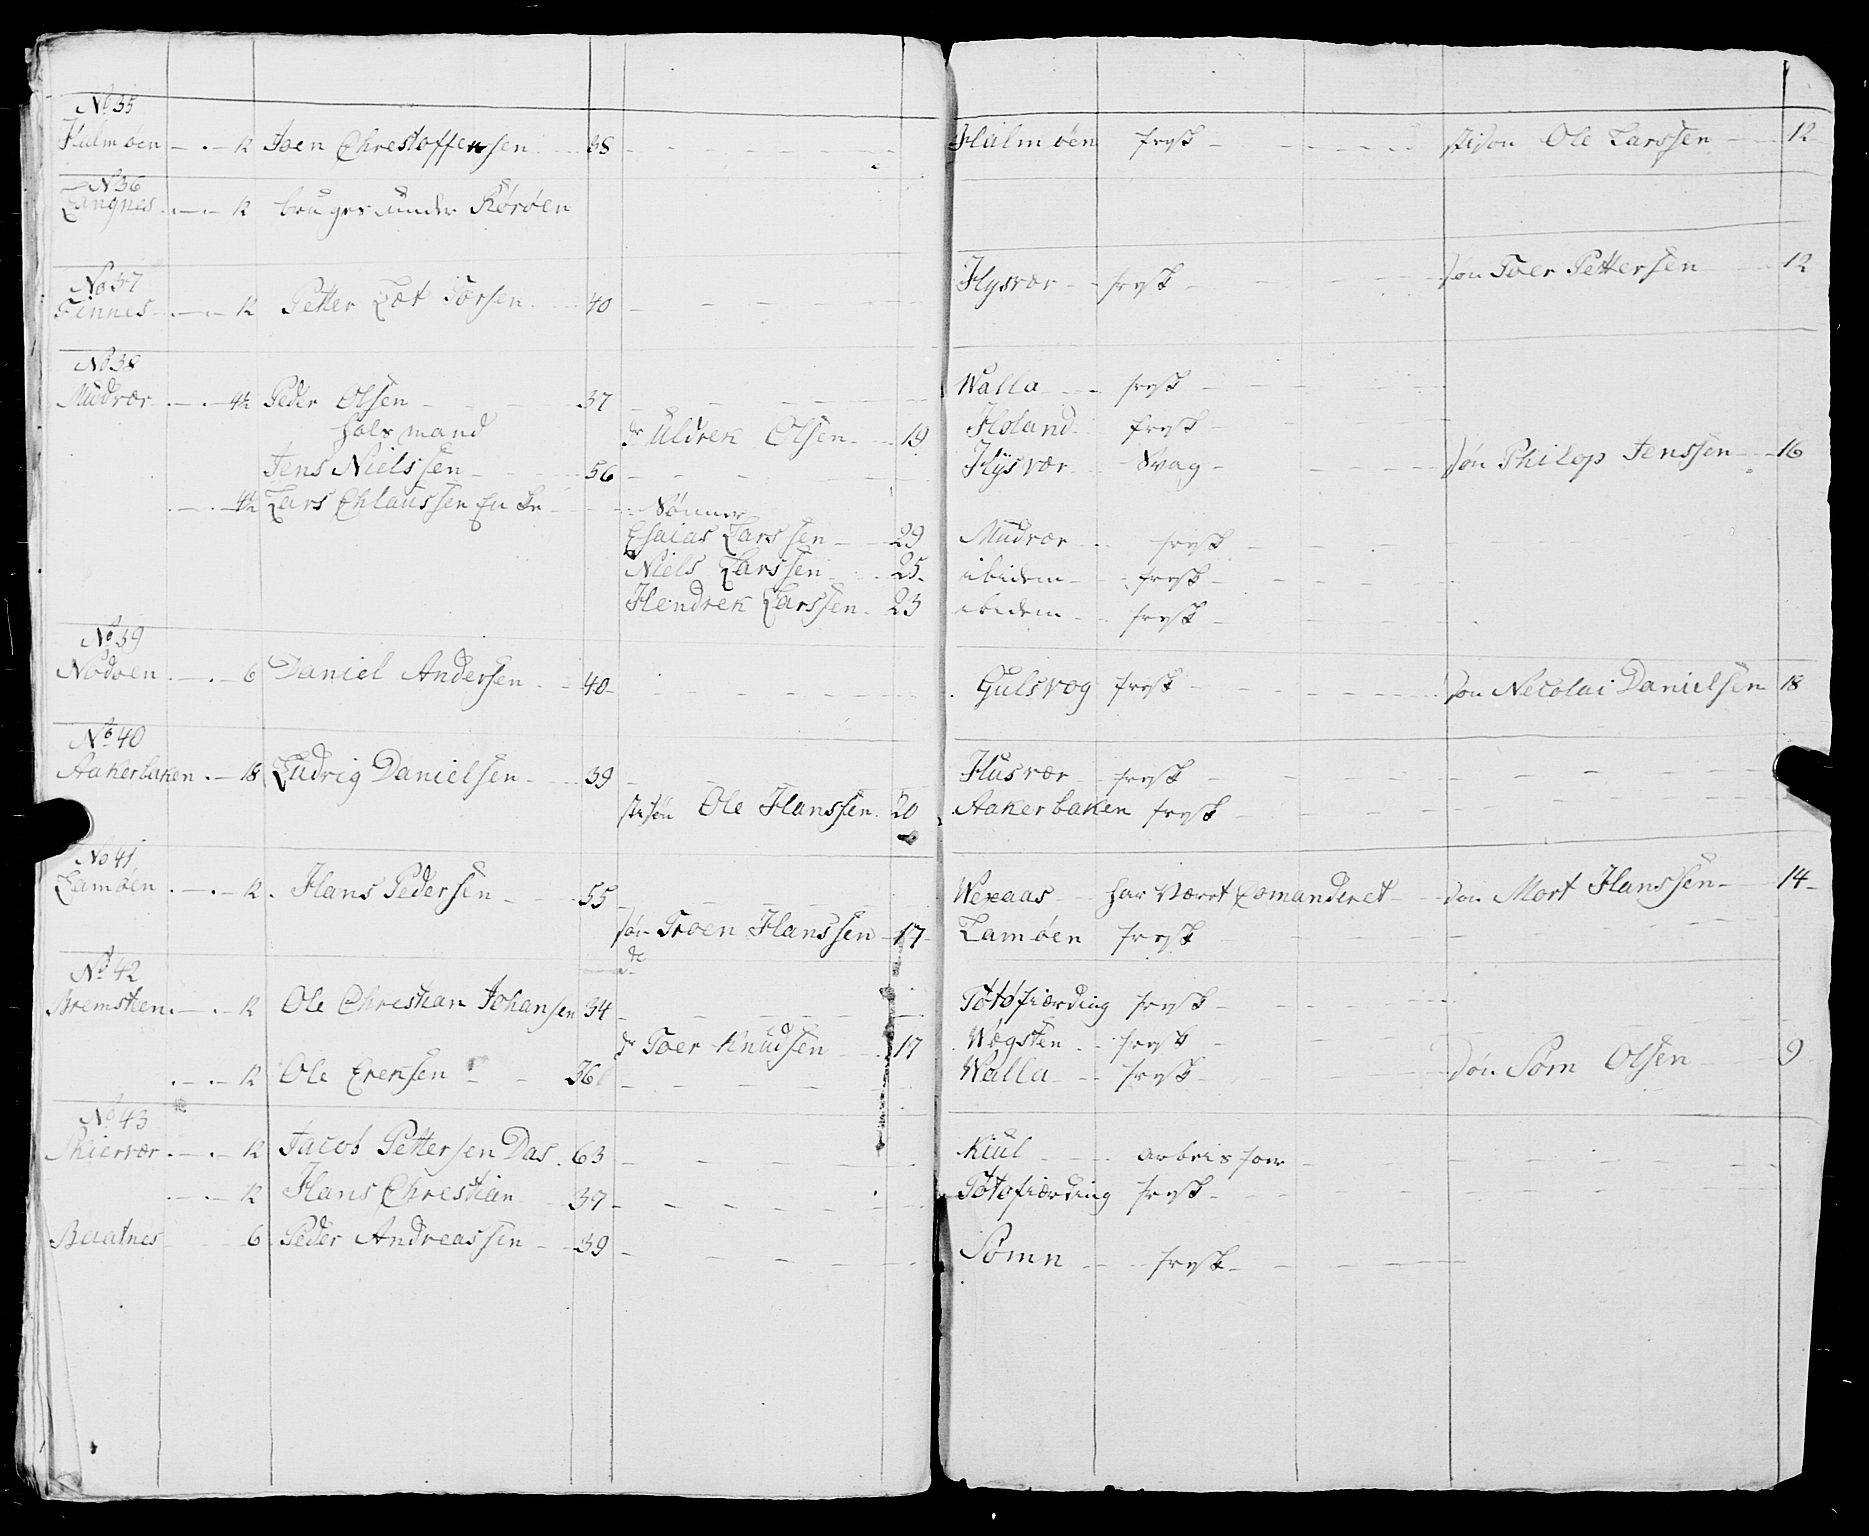 No 35
Halmøen 12 Joen Chrestoffersen 38 Halmøen frisk stisøn Ole Larssen 12
No 36
Langnes 12 bruges under Rørøen
No 37
Finnes 12 Petter Zæt Torsen 40 Hysvær frisk søn Toer Pettersen 12
No 38
Mudvær 4½ Peder Olsen 37 Walla frisk
Huusmand dr Uldrek Olsen 19 Holand frisk
Jens Nielssen 56 Hysvær Svag søn Philop Jenssen 16
4½ Lars Chlaussen Enke Sønner
Esaias Larssen 29 Mudvær frisk
Niels Larssen 25 ibidem frisk
Hendrek Larssen 23 ibidem frisk
No 39
Nødøen 6 Daniel Andersen 40 Gulsvog frisk søn Necolai Danielsen 18
No 40
Aakerbaken 18 Ludvig Danielsen 39 Husvær frisk
stisøn Ole Hanssen 20 Aakerbaken frisk
No 41
Lamøen 12 Hans Pedersen 55 Wexaas har Været Comanderet søn Mort Hanssen 14
søn Troen Hanssen 17 Lamøen frisk
No 42 dr
Bremsteen 12 Ole Chrestian Johansen 34 Totøfiærding frisk
dr Toer Knudsen 17 Wogsten frisk
12 Ole Ereksen 36 Walla frisk søn Sørn Olsen 9
No 43
Skiervær 12 Jacob Pettersen Das 63 Kiul
12 Hans Chrestian 37 Totøfiærding frisk
Baatnes 6 Peder Andreassen 39 Sømn frisk